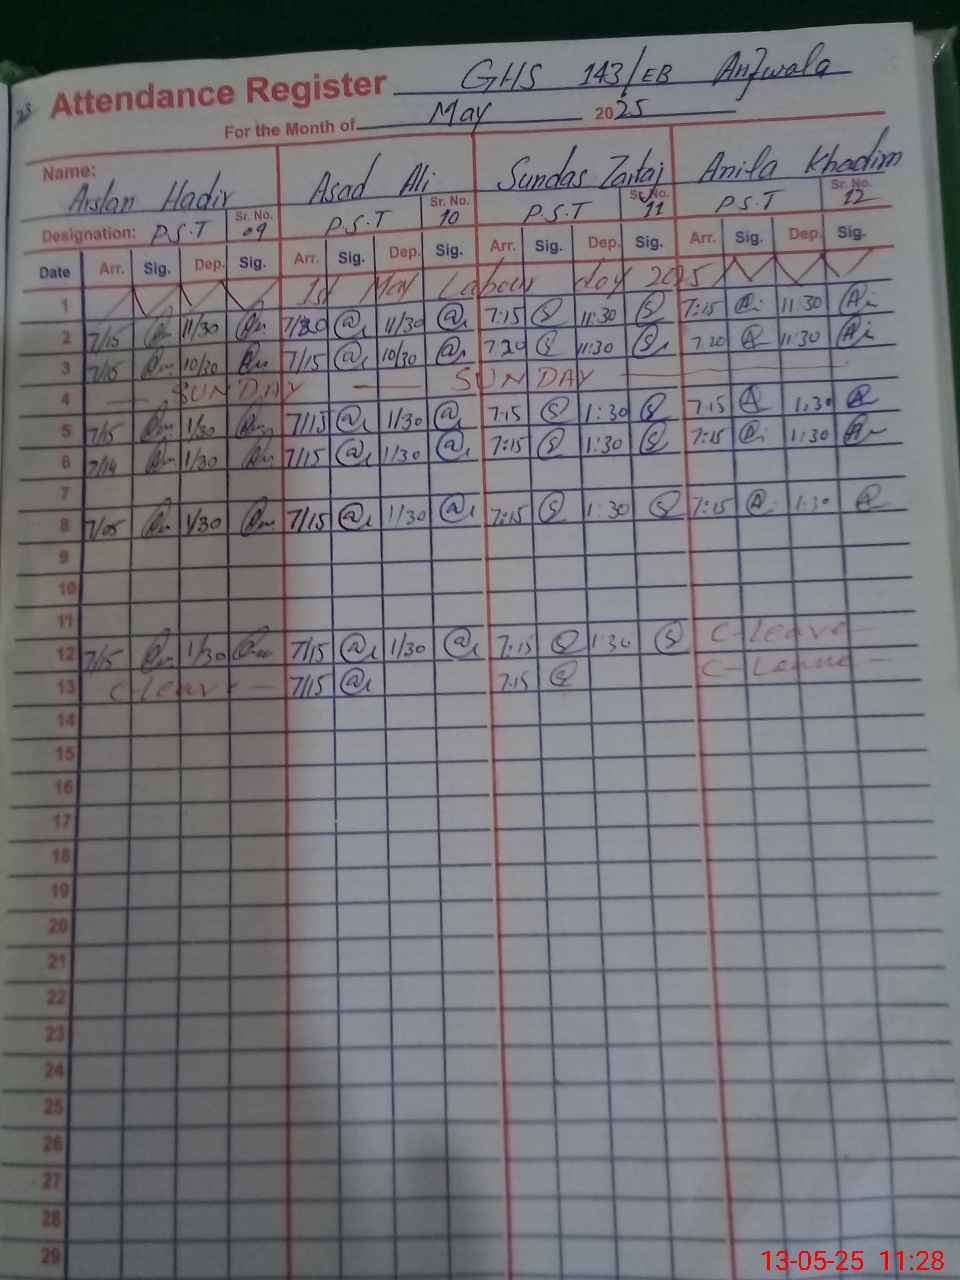 23
Attendance Register GHS 143/EB
For the Month of May 2025
Name: Arslan Hadir Asad Ali Sundas Zartaj Anila Khadim
Designation: P.S.T Sr. No. 09 P.S.T Sr. No. 10 P.S.T Sr. No. 11 P.S.T Sr. No. 12
Date Arr. Sig. Dep. Sig. Arr. Sig. Dep. Sig. Arr. Sig. Dep. Sig. Arr. Sig. Dep. Sig.
1 1st May Labour day 2025
2 7/15 11/30 7/20 11/30 7:15 11:30 7:15 11:30
3 7/15 10/30 7/15 10/30 7.20 11:30 7.20 11:30
4 SUNDAY SUNDAY
5 7/15 1/30 7/15 11/30 7:15 1:30 7:15 1:30
6 7/14 1/30 7/15 1/30 7:15 1:30 7:15 1:30
7
8 7/05 1/30 7/15 1/30 7:15 1:30 7:15 1:30
9
10
11
12 7/15 1/30 7/15 1/30 7:15 1:30 C-Leave-
13 C-Leave- 7/15 7:15 C-Leave-
14
15
16
17
18
19
20
21
22
23
24
25
26
27
28
29
13-05-25 11:28